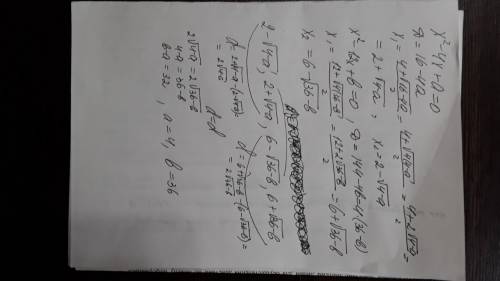 x² - 4x + a = 0
D = 16 - 4a
x₁ = (4 + √(16-4a))/2 = (4 + √(4(4-a)))/2 = (4 + 2√(4-a))/2 =
= 2 + √(4-a), x₂ = 2 - √(4-a)
x² - 12x + b = 0, D = 144 - 4b = 4(36-b)
x₁ = (12 + √(4(36-b)))/2 = (12 + 2√(36-b))/2 = 6 + √(36-b)
x₂ = 6 - √(36-b)
2 - √(4-a); 2 + √(4-a); 6 - √(36-b); 6 + √(36-b)
d = 2 + √(4-a) - (2 - √(4-a)) = 2√(4-a)
d = 6 + √(36-b) - (6 - √(36-b)) = 2√(36-b)
d = d
2√(4-a) = 2√(36-b)
4 - a = 36 - b
b - a = 32, a = 4, b = 36